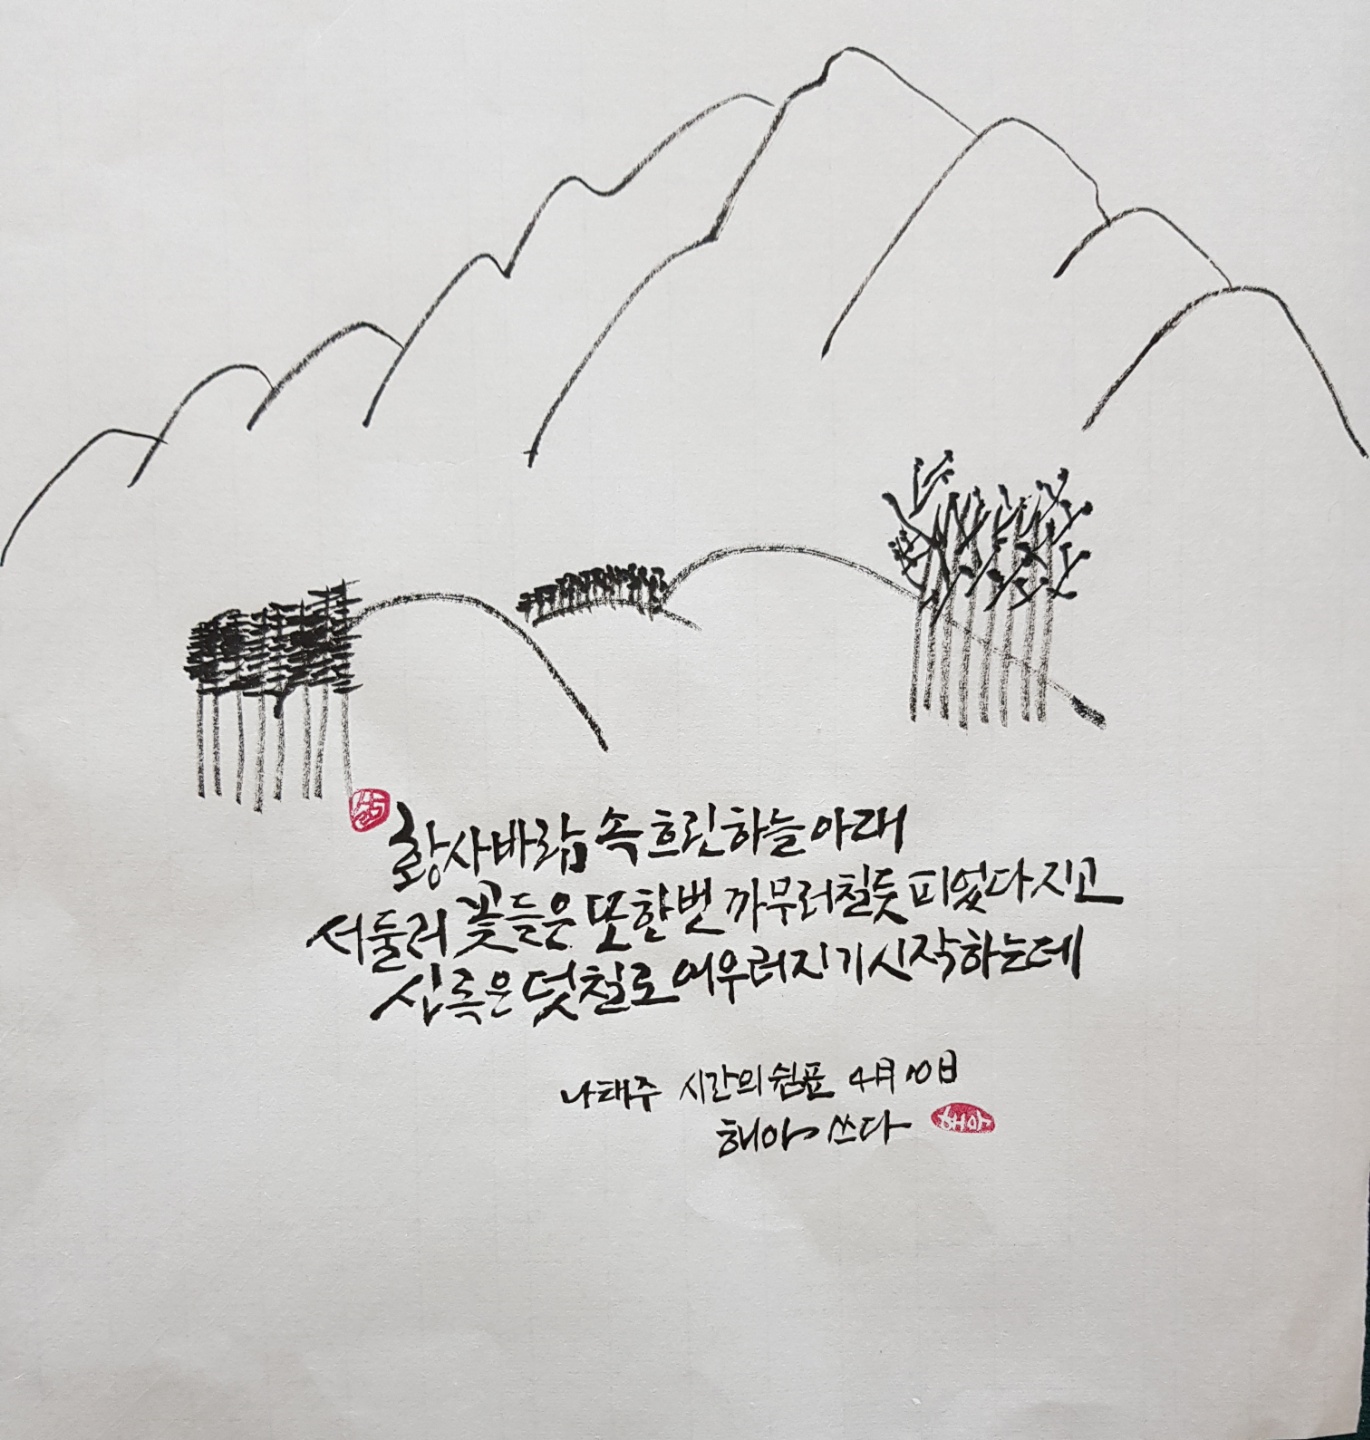 황사바람 속 흐린 하늘 아래
서둘러 꽃들은 또 한번 까무러칠 듯 피었다 지고
신록은 덧칠로 어우러지기 시작하는데
나태주 시간의 쉼표 4月 10日
해아 쓰다
해아